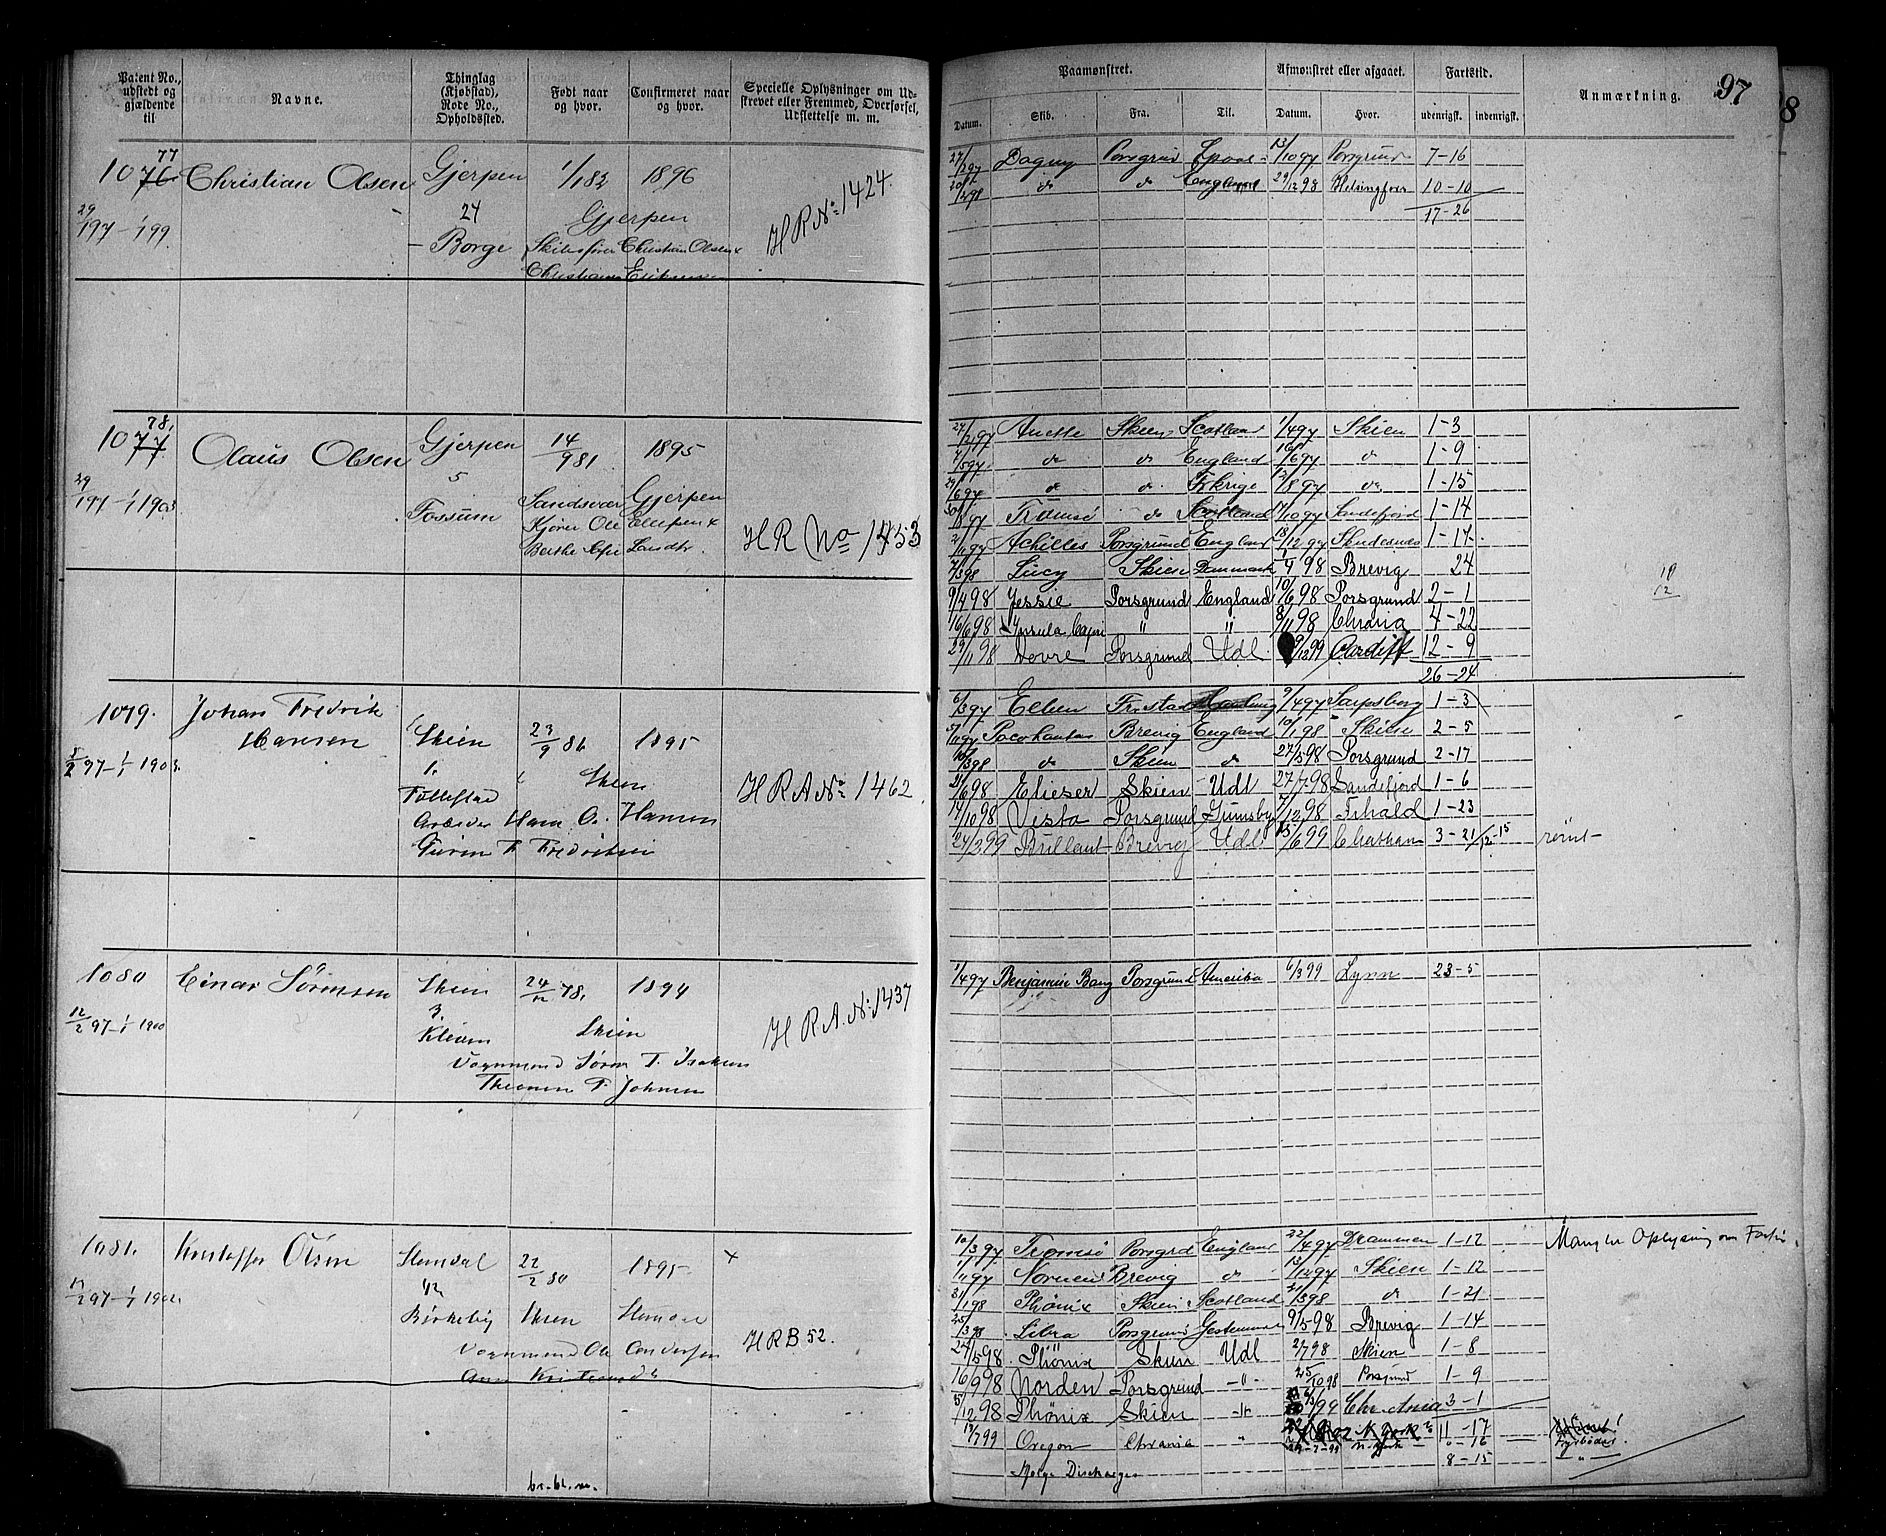 97
98
Patent No., udstedt og gjældende til
Navne.
Thinglag (Kjøbstad), Rode No., Opholdssted.
Født naar og hvor.
Confirmeret naar og hvor.
Specielle Oplysninger om Udskrevet eller Fremmed, Overførsel, Udslettelse m. m.
Paamønstret.
Afmønstret eller afgaaet.
Fartstid.
Anmærkning.
Datum.
Skib.
Fra.
Til.
Datum.
Hvor.
udenrigsk.
indenrigsk.
77
1076 Christian Olsen Gjerpen 1/1 82 1896
29/1 97 - 1/1 99 24 Gjerpen HR No 1424.
Borge Skibsfører Christian Olsen
Christiane Eriksen
27/2 97 Dagny Porsgrund 13/10 97 Porsgrund 7-16
do do England 29/12 98 Helsingfors 10-10
17-26
78.
1077 Olaus Olsen Gjerpen 14/9 81 1895
29/1 97 - 1/1 1903 5 Sandsvær Gjerpen
Fossum Kjører Ole Ellefsen
Berthe HR No 1453
27/2 97 Anette Skien Scotland 1/4 97 Skien 1-3
7/5 97 do do England 16/6 97 do 1-9
29/6 97 do do Fkrige 12/8 97 do 1-15
Tromsø do Scotland 10 97 Sandefjord 1-14
2/11 97 Achilles Porsgrund England 18/12 97 Skudesnes 1-17
7/3 98 Lucy Skien Danmark 1/4 98 Brevig 24
9/4 98 Jessie Porsgrund England 10/6 98 Porsgrund 2-1
16/6 98 Insula Capri " " 8/11 98 Chrania 4-22
29/11 98 Dovre Porsgrund Udl. 9/12 99 Cardiff 12-9
26-24
1079. Johan Fredrik Hansen Skien 23/9 86 1895
5/2 97 - 1/1 1903. 1. Skien
Følkestad HRA No 1462
Arbeider Hans O. Hansen
Fredriksen
6/3 97 Ellen Frstad 9/4 97 Sarpsborg 1-3
3/11 97 Pocohantas Brevig England 10/1 98 Skien 2-5
10/3 98 do Skien do 27/5 98 Porsgrund 2-17
21/6 98 Elieser Skien Udl 27/7 98 Sandefjord 1-6
14/10 98 Vesta Porsgrund Grimsby 7/12 98 Frhald 1-23
24/2 99 Brillant Brevig Udl 15/6 99 Chatham 3-21 rømt
1080 Einar Sørensen Skien 24/12 78. 1894
12/2 97 - 1/1 1900 3. Skien HRA. No: 1437
Kleiven
Vognmand Søren T. Isaksen
T. Johnsen
1/4 97 Benjamin Bang Porsgrund Amerika 6/3 99 Lynn 23-5
1081. Kristoffer Olsen Slemdal 22/2 80 1895 x
12/2 97 - 1/1 1902. 42
Birkeby Skien Slemdal HRB 52.
Vognmand Ole Andersen
10/3 97 Tromsø Porsgrd England 22/4 97 Drammen 1-12 Mangler Oplysning om Fartst.
1/11 97 Nornen Brevig do 13/12 97 Skien 1-12
31/1 98 Phönix Skien Scotland 21/3 98 do 1-21
25/3 98 Libra Porsgrund 9/5 98 Brevig 1-14
27/5 98 Phönix Skien Udl 2/7 98 Skien 1-8
16/9 98 Norden Porsgrund - " - 25/10 98 Porsgrund 1-9
5/12 98 Phönix Skien - " - 99 Chr. Ania 3-1
12/7 99 Oregon Chrania " N. York 11-17
N. York " - 16 Fyrbøder!
8-15
Norge Discharges